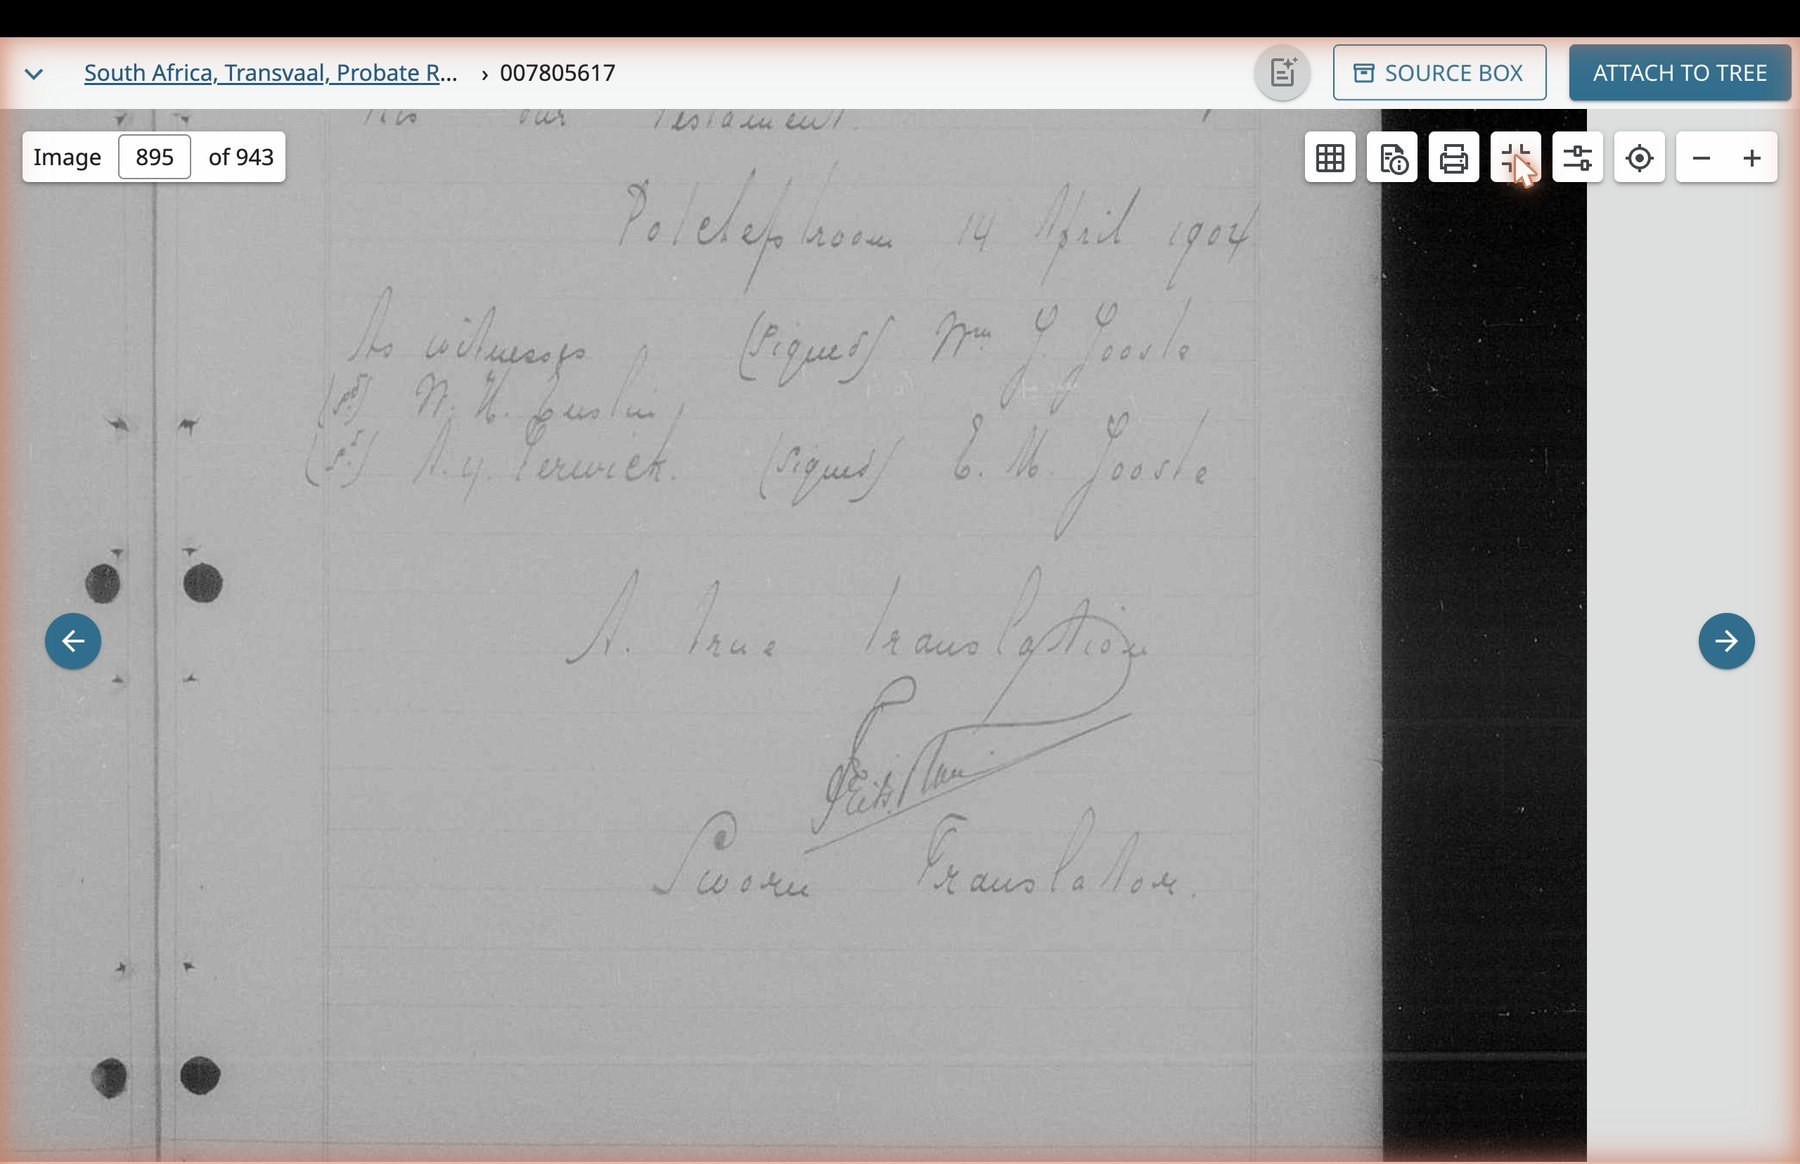 South Africa, Transvaal, Probate R... › 007805617
SOURCE BOX
ATTACH TO TREE
Image 895 of 943
his our Testament.
Potchefstroom 14 April 1904
As witnesses (Signed) Wm J. Jooste
(sd) W. H.
(sd) Terwick. (Signed) E. M. Jooste
A. true translation
Sworn Translator.